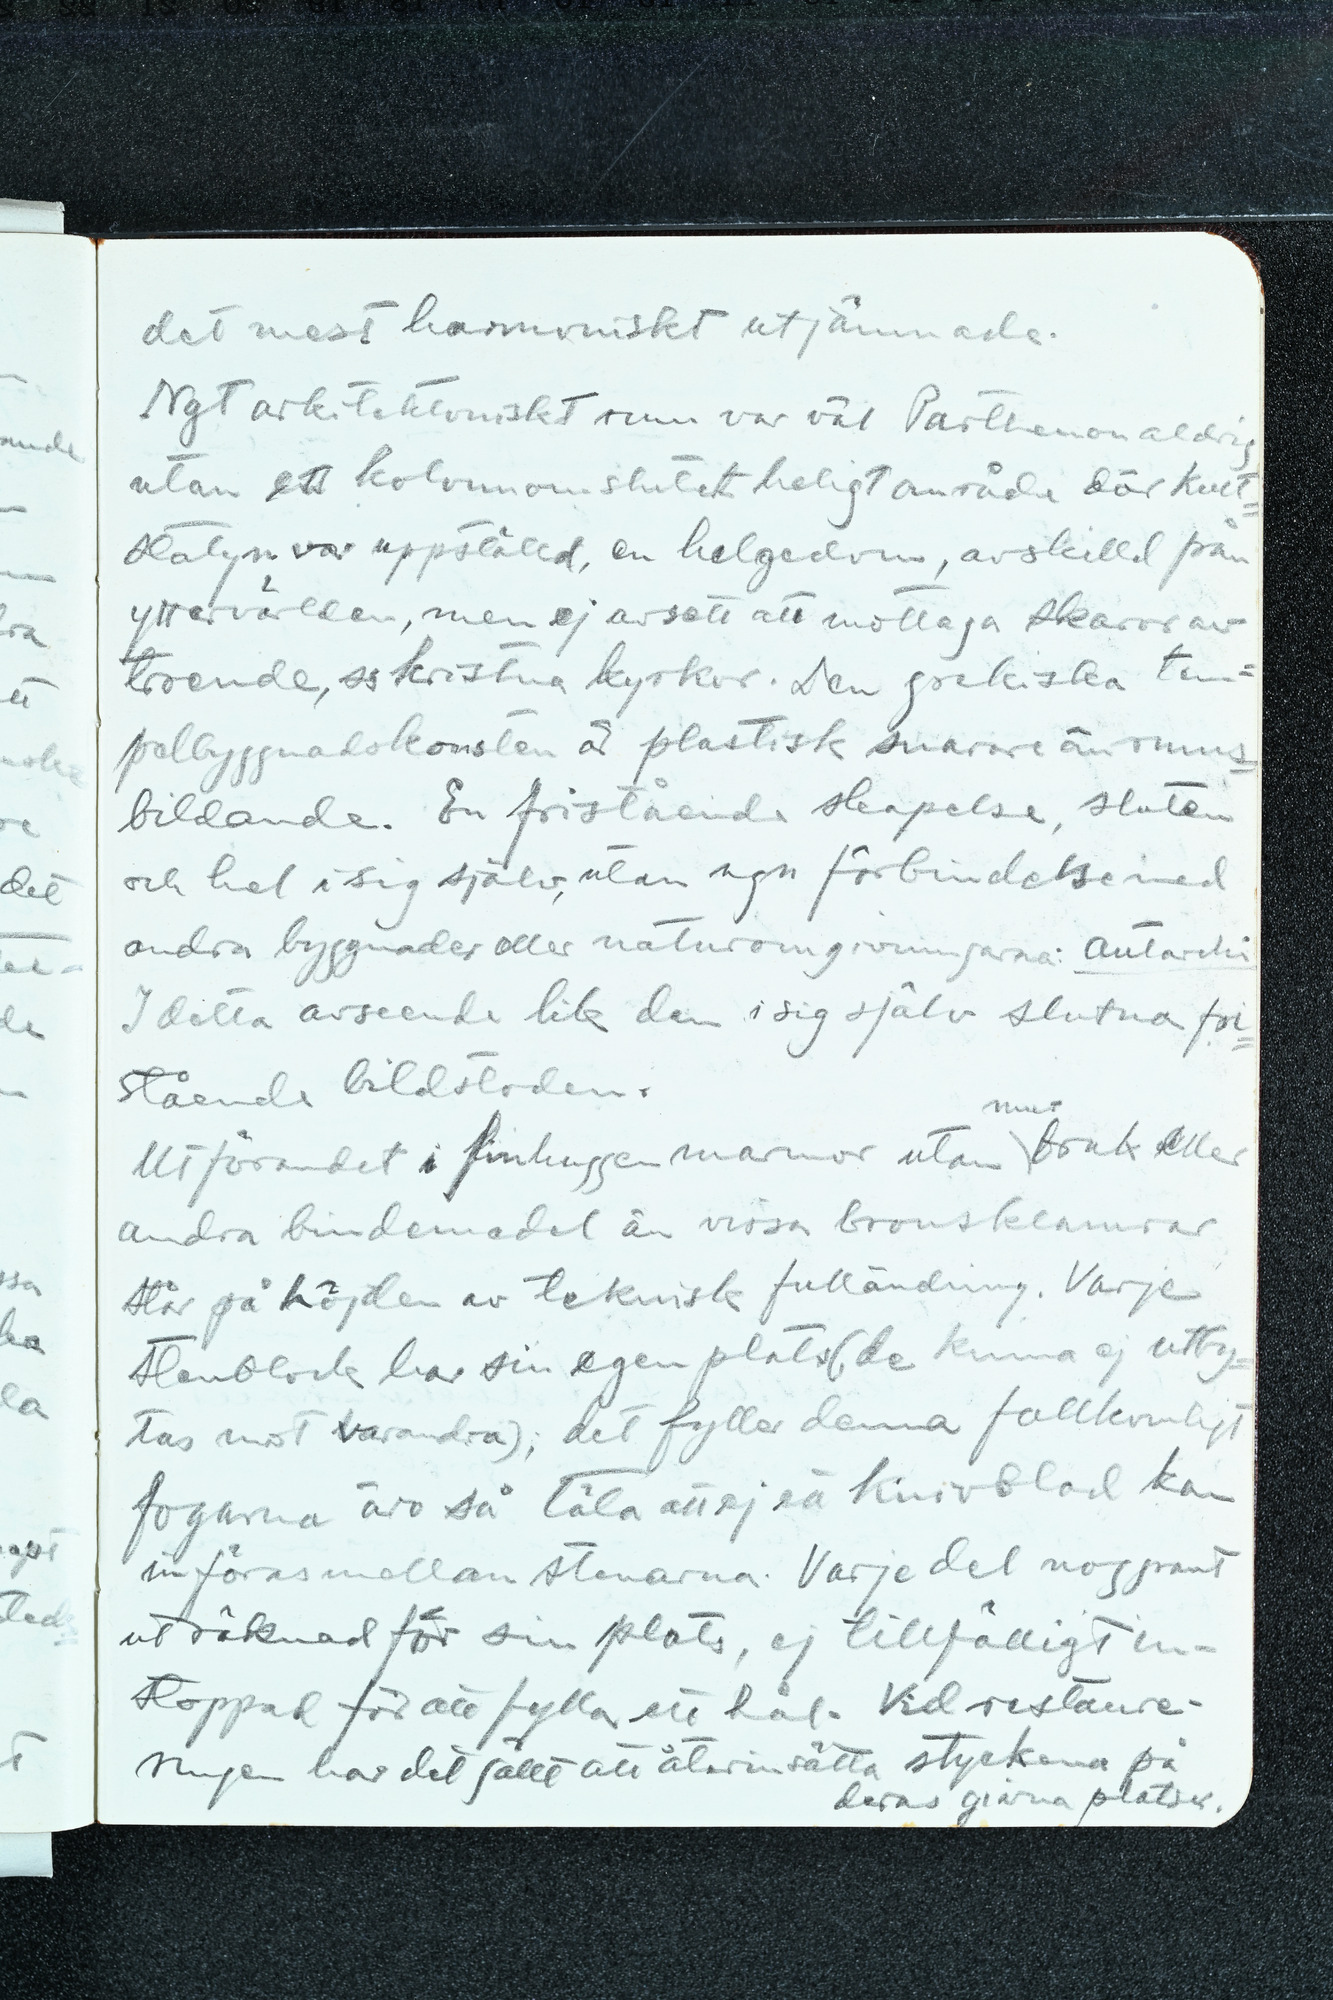 det mest harmoniskt utjämnade.
Ngt arkitektoniskt rum var väl Parthenon aldrig
utan ett kolonnomslutet heligt område där kult=
statyn var uppställd, en helgedom, avskilld från
yttervärlden, men ej avsett att mottaga skaror av
troende, ss kristna kyrkor. Den grekiska tem=
pelbyggnadskonsten är plastisk snarare än rums=
bildande. En fristående skapelse, sluten
och hel i sig själv, utan ngn förbindelse med
andra byggnader eller naturomgivningarna: autarki
I detta avseende lik den i sig själv slutna fri=
stående bildstoden.
Utförandet i finhuggen marmor utan mur bruk eller
andra bindemedel än vissa bronsklamrar
står på höjden av teknisk fulländning. Varje
stenblock har sin egen plats (de kunna ej utby=
tas mot varandra); det fyller denna fullkomligt
fogarna äro så täta att ej ett knivblad kan
införas mellan stenarna. Varje del noggrant
uträknad för sin plats, ej tillfälligt in-
stoppad för att fylla ett hål. Vid restaure-
ringen har det gällt att återinsätta styckena på
deras givna platser.